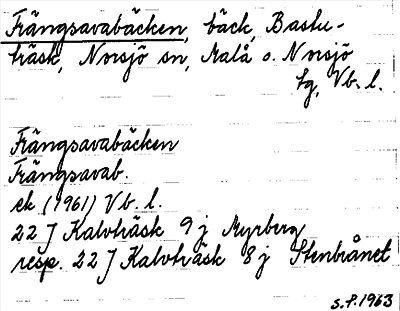 Frängsavabäcken, bäck, Bastu-
träsk, Norsjö sn, Malå o. Norsjö
tg, Vb. l.
Frängsavabäcken
Frängsavab.
ek (1961) Vb. l.
22 J Kalvträsk 9 j Myrberg
resp. 22 J Kalvträsk 8 j Stenbrånet
S.P. 1963